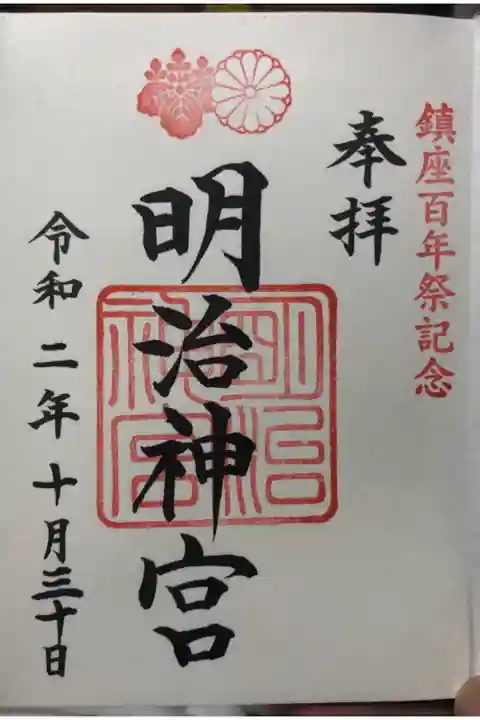 鎮座百年祭記念
奉拝
明治神宮
明治神宮
令和二年十月三十日